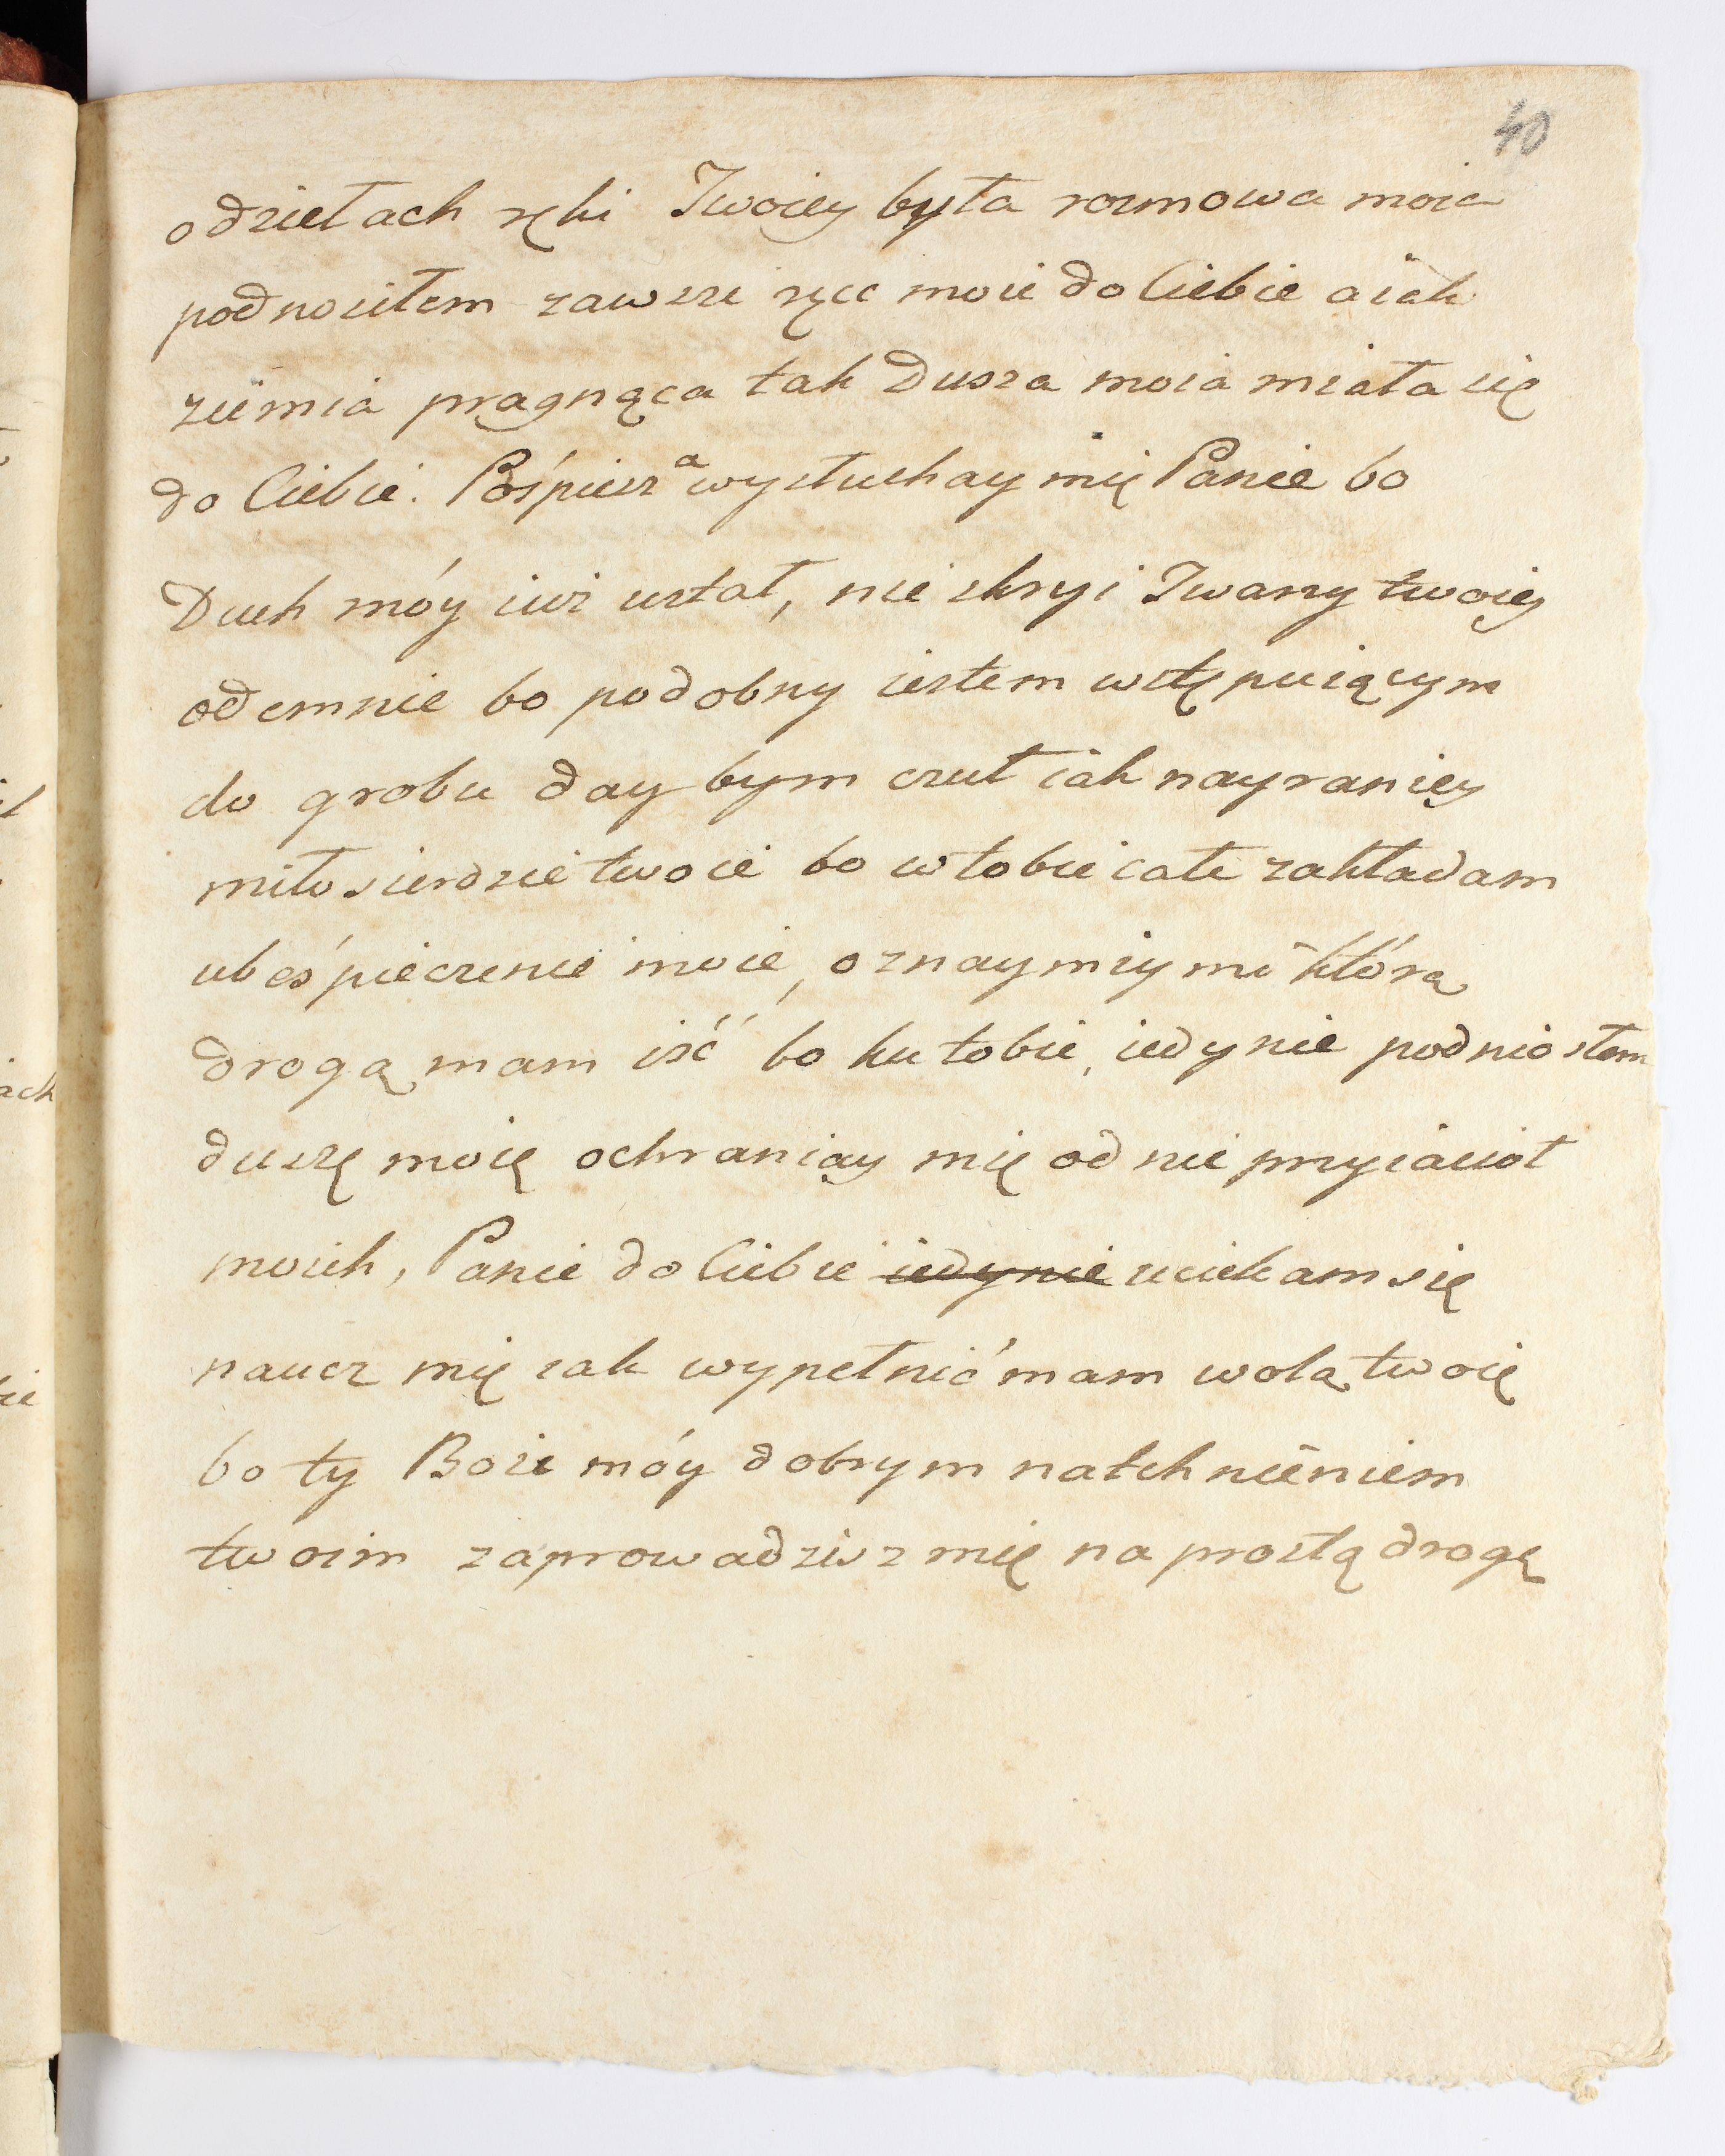 40
o dziełach ręki Twoiey była rozmowa moia
podnosiłem zawsze ręce moie do Ciebie a iak
ziemia pragnąca tak Dusza moia miała się
do Ciebie. Pośpiesz a wysłuchay mię Panie bo
Duch móy iuż ustał, nie skryi Twarzy twoiey
odemnie bo podobny iestem wstępuiącym
do grobu day bym czuł iak nayraniey
miłosierdzie twoie bo w tobie całe zakładam
ubeśpieczenie moie, oznaymiy mi którą
drogą mam iść bo ku tobie, iedynie podniosłem
duszę moię ochraniay mię od nieprzyiaciół
moich, Panie do Ciebie iedynie uciekam się
naucz mię iak wypełnić mam wolą twoię
bo ty Boże móy dobrym natchnieniem
twoim zaprowadzisz mię na prostą drogę
ił
ach
ie